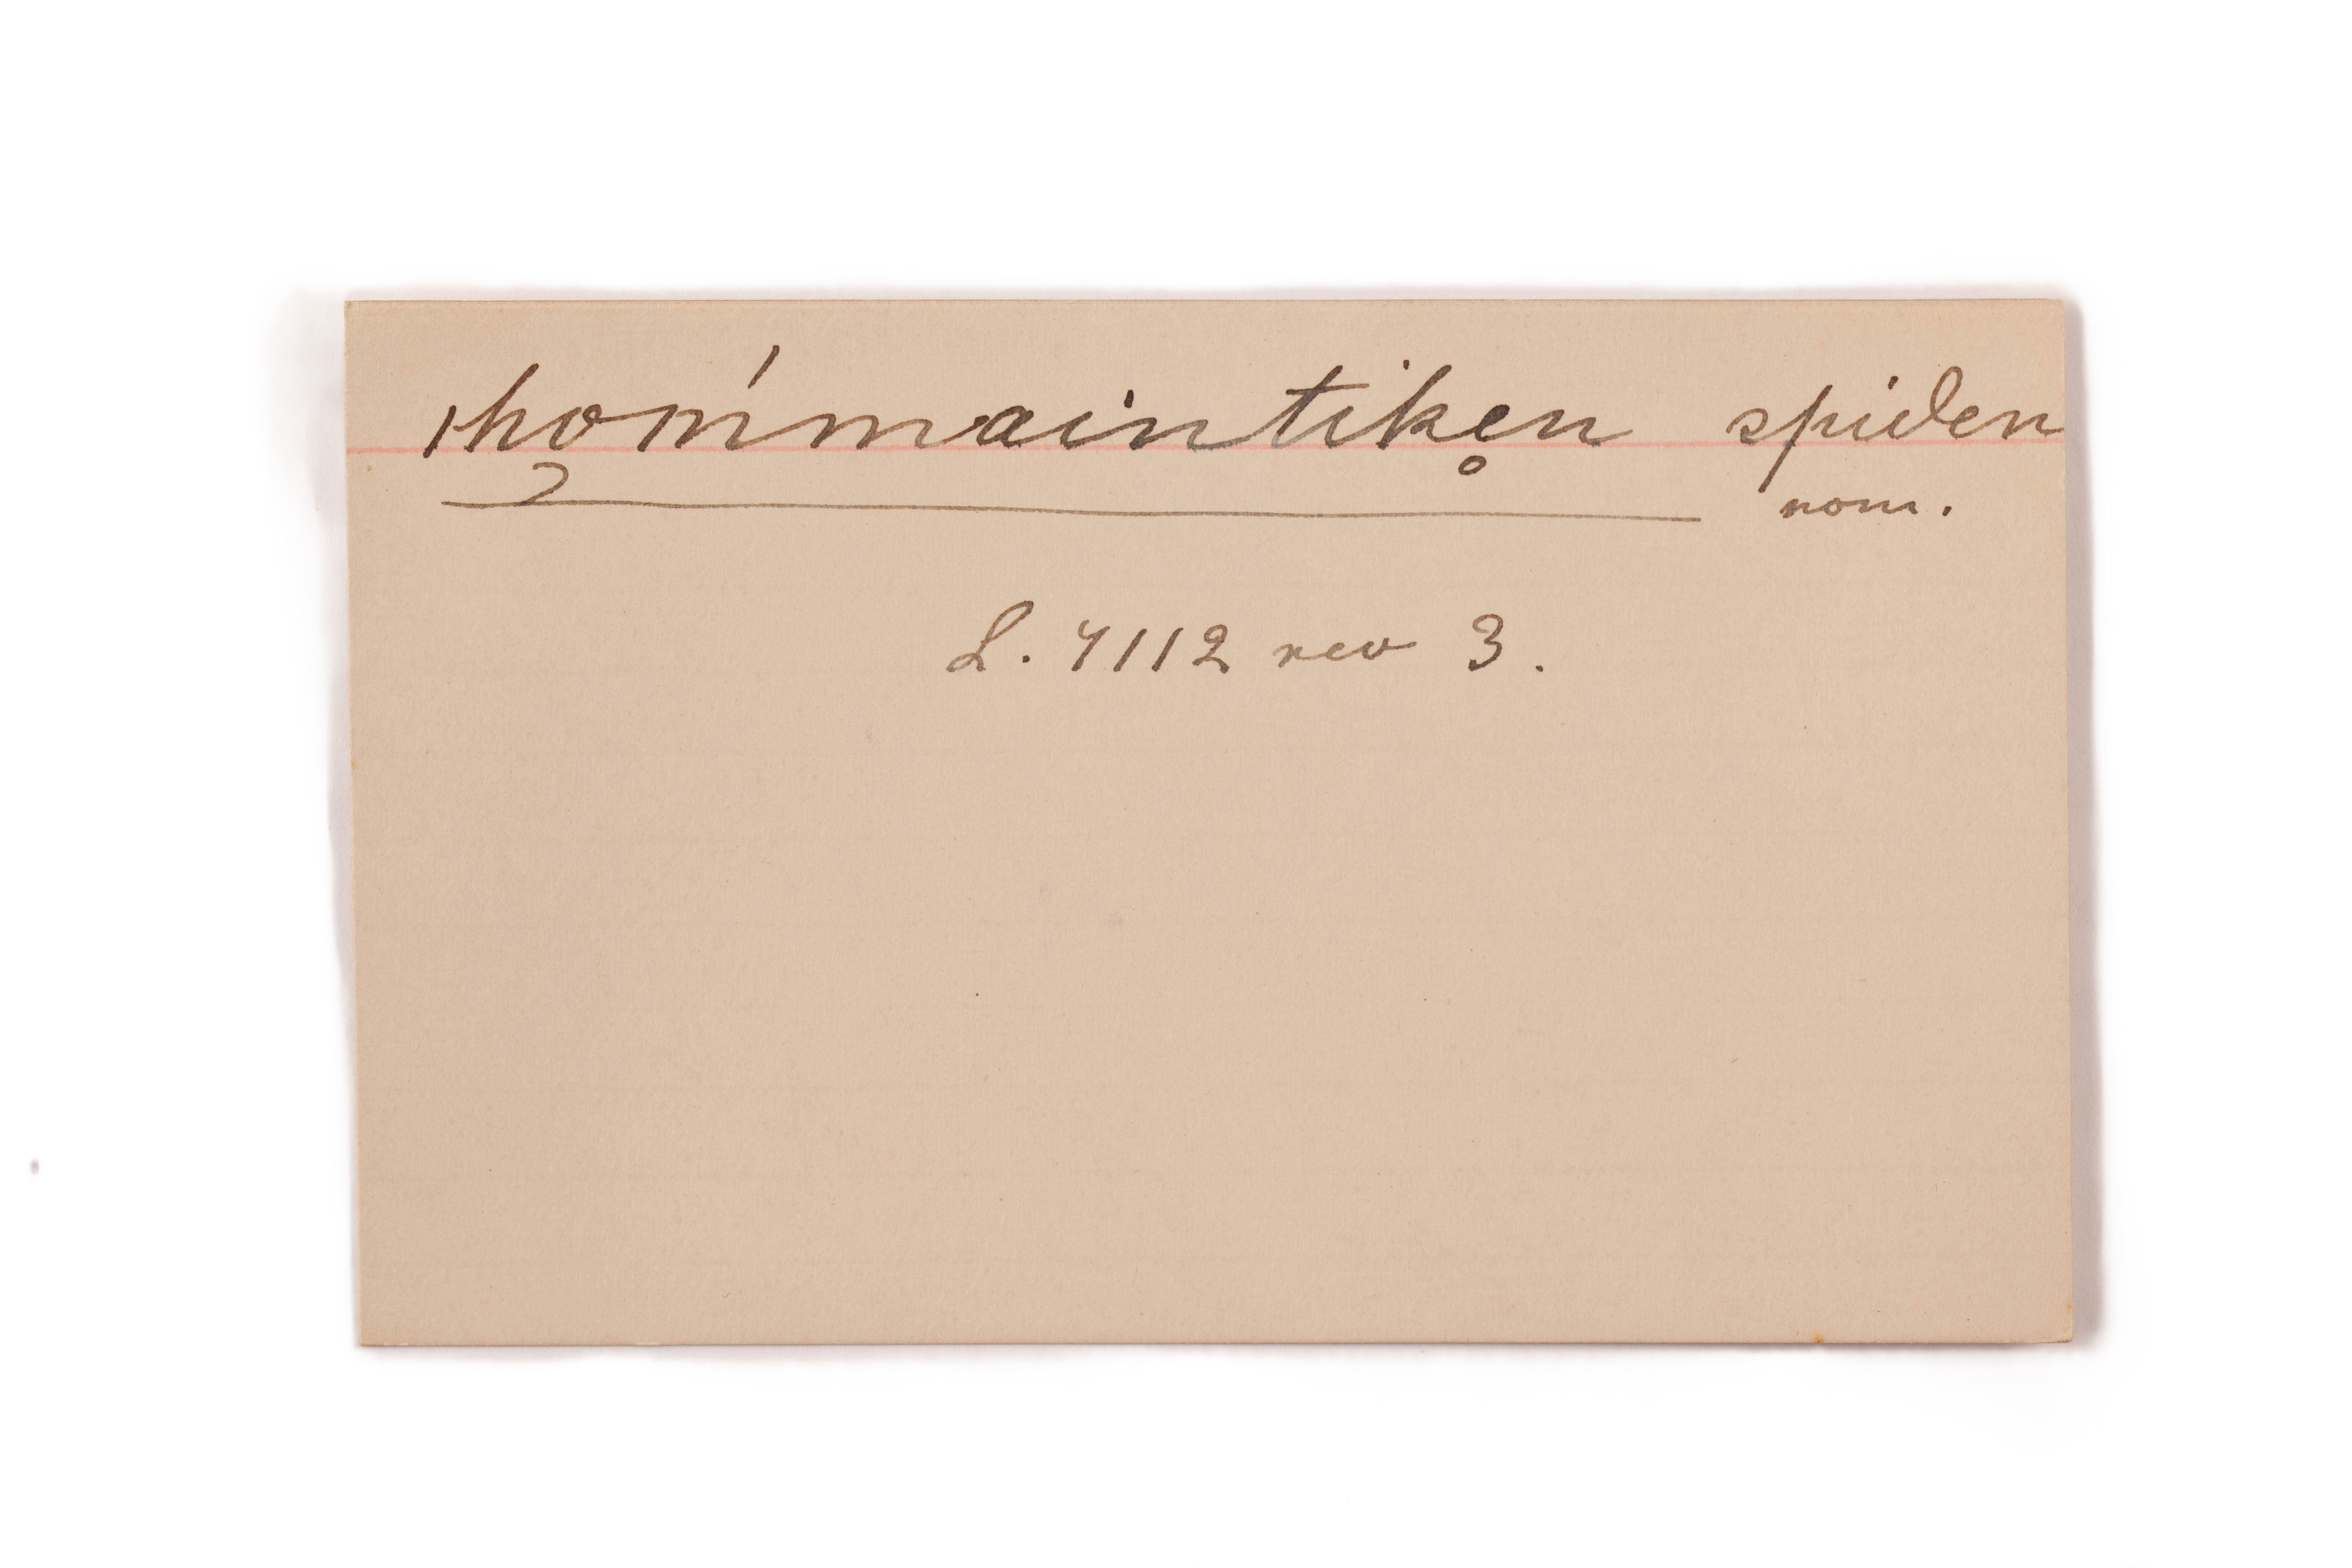 ıhǫm'maintike̥n spiden
nom.
L. 7112 rev 3.